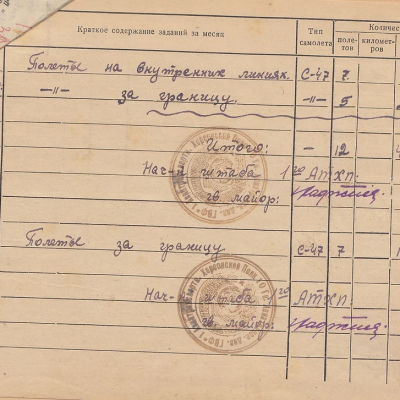 Краткое содержание заданий за месяц
Тип самолета
Количес
поле-тов
километ-ров
Полеты на внутренних линиях. С-47 7
—"— за границу. —"— 5
Итого: — 12
Нач-к штаба 1го АТХП:
гв. майор:
Полеты за границу С-47 7
Нач-к штаба 1го АТХП:
гв. майор: